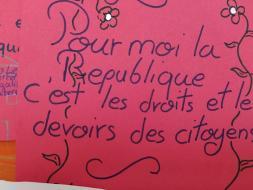 Pour moi la
République
C'est les droits et le
devoirs des citoyens